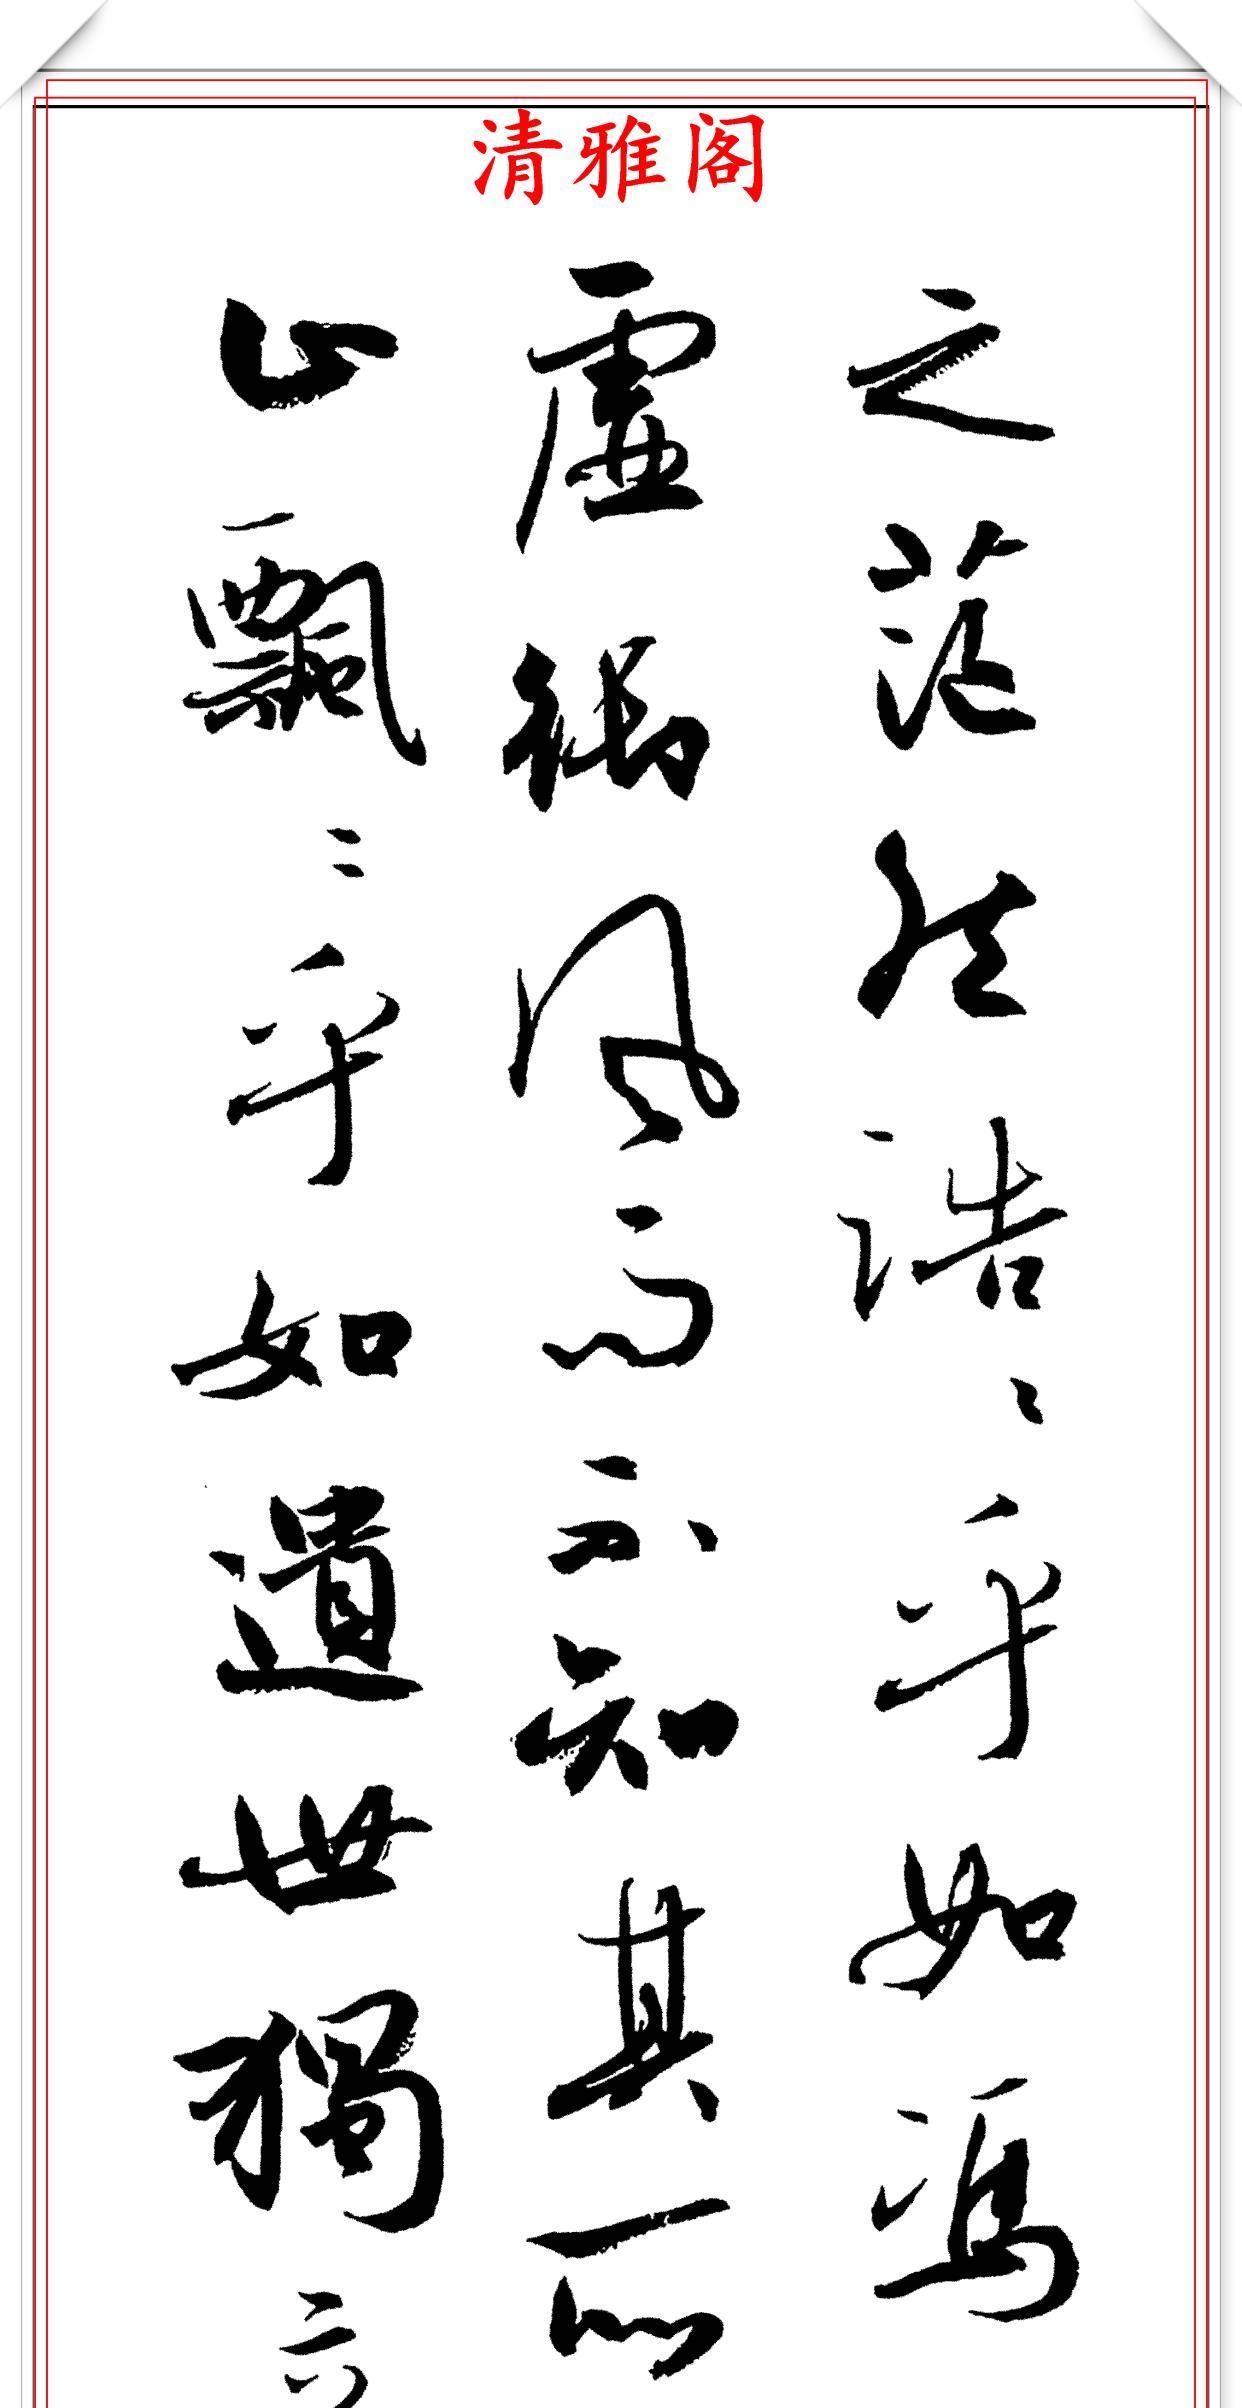 清雅阁
之茫然浩〻乎如馮
虚御風而不知其所
止飄〻乎如遺世獨立